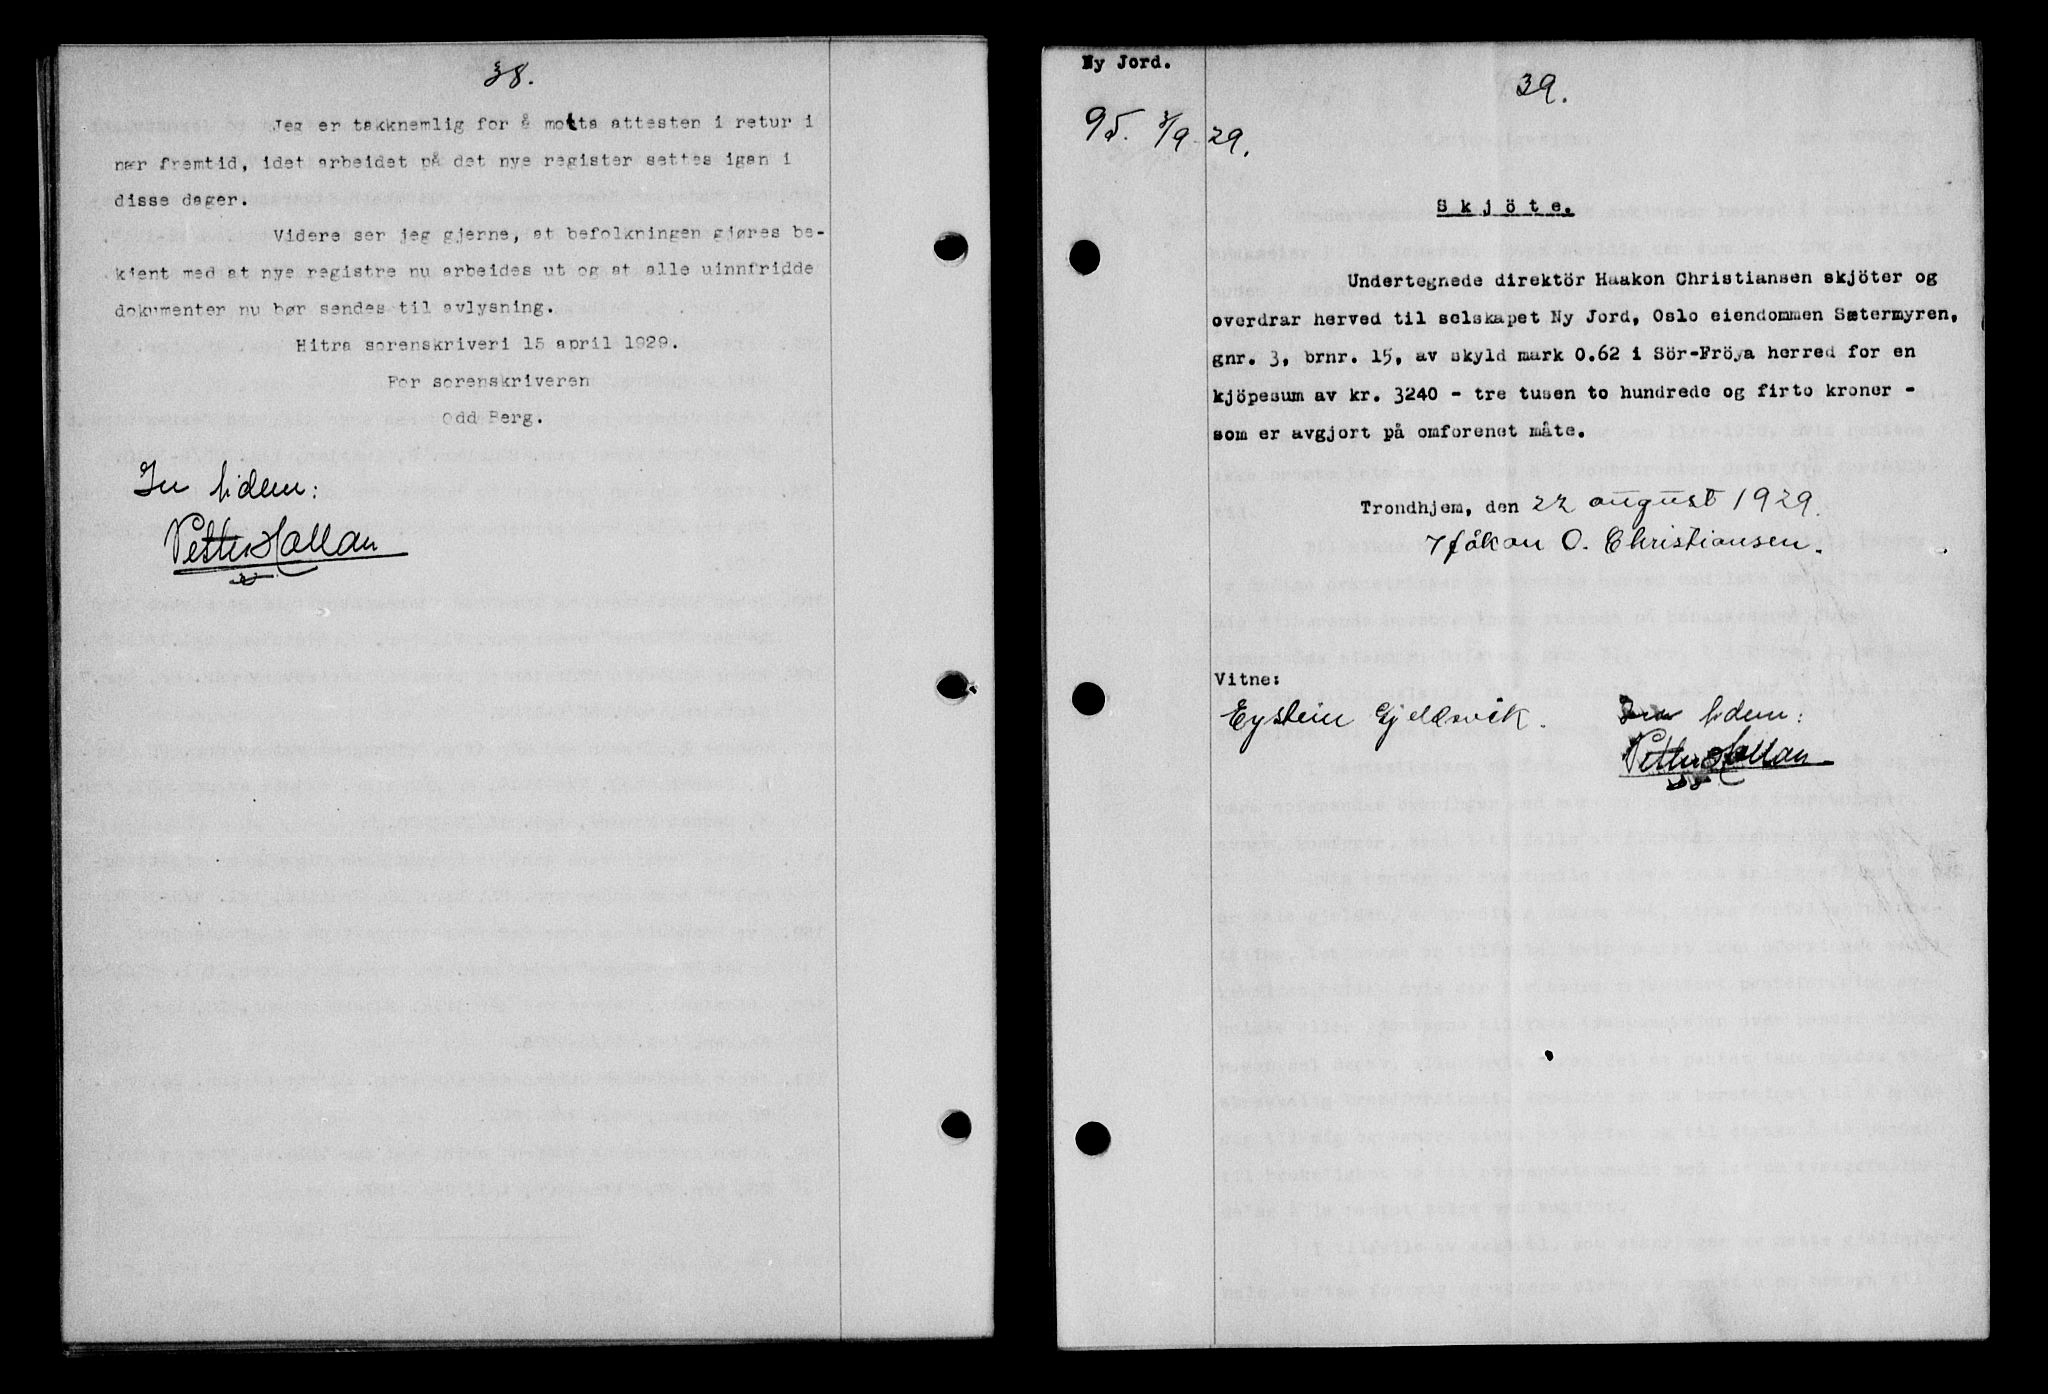 38.
Jeg er takknemlig for å motta attesten i retur i
nær fremtid, idet arbeidet på det nye register settes igan i
disse dager.
Videre ser jeg gjerne, at befolkningen gjøres be-
kjent med at nye registre nu arbeides ut og at alle uinnfridde
dokumenter nu bør sendes til avlysning.
Hitra sorenskriveri 15 april 1929.
For sorenskriveren
Odd Berg.
In fidem:
Petter Hallan
Ny Jord.
39.
95. 7/9-29.
Skjöte.
Undertegnede direktör Haakon Christiansen skjöter og
overdrar herved til selskapet Ny Jord, Oslo eiendommen Sætermyren,
gnr. 3, brnr. 15, av skyld mark 0.62 i Sör-Fröya herred for en
kjöpesum av kr. 3240 - tre tusen to hundrede og firto kroner -
som er avgjort på omforenet måte.
Trondhjem, den 22 august 1929.
Håkon O. Christiansen.
Vitne:
Eystein Gjelsvik.
In fidem:
Petter Hallan